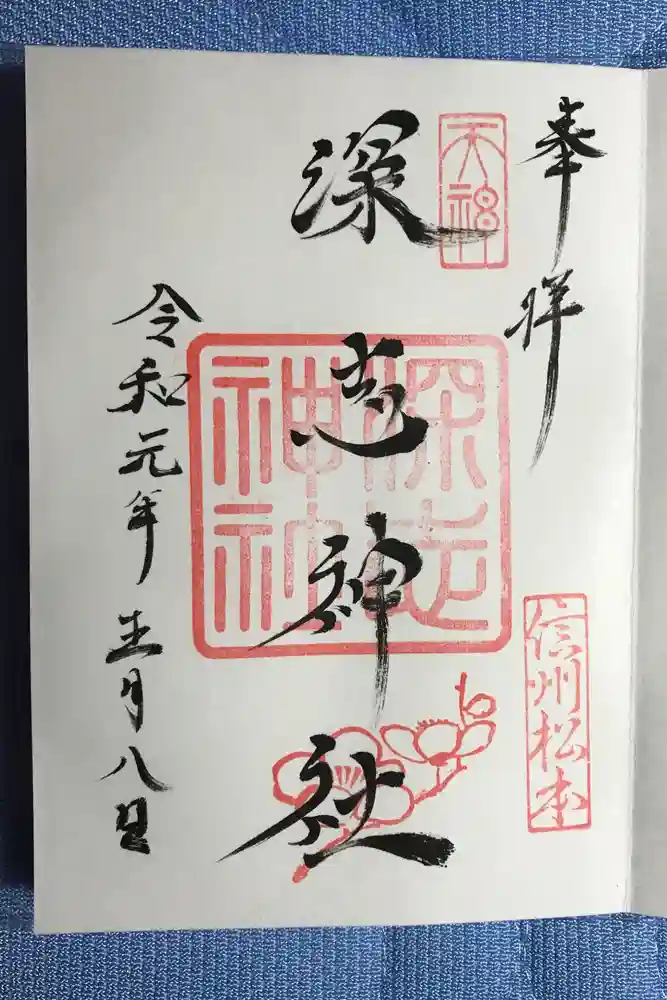 奉拝
天神
信州松本
深志神社
深志神社
令和元年 月八日